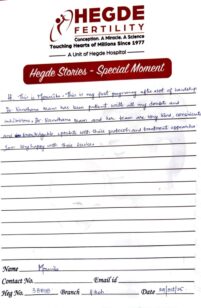 HEGDE
FERTILITY
Conception. A Miracle. A Science
Touching Hearts of Millions Since 1977
A Unit of Hegde Hospital
Hegde Stories - Special Moment
This is Mounika. This is my first pregnancy after of hardship
Dr Vandhana mam has been patient with all my doubts and
Dr Vandhana mam and her team are very kind, considerate
and knowledgable upfront with their protocols and treatment approaches
I am very happy with their services.
Name Mounika
Contact No.
Email id
Heg No.
Branch
Date